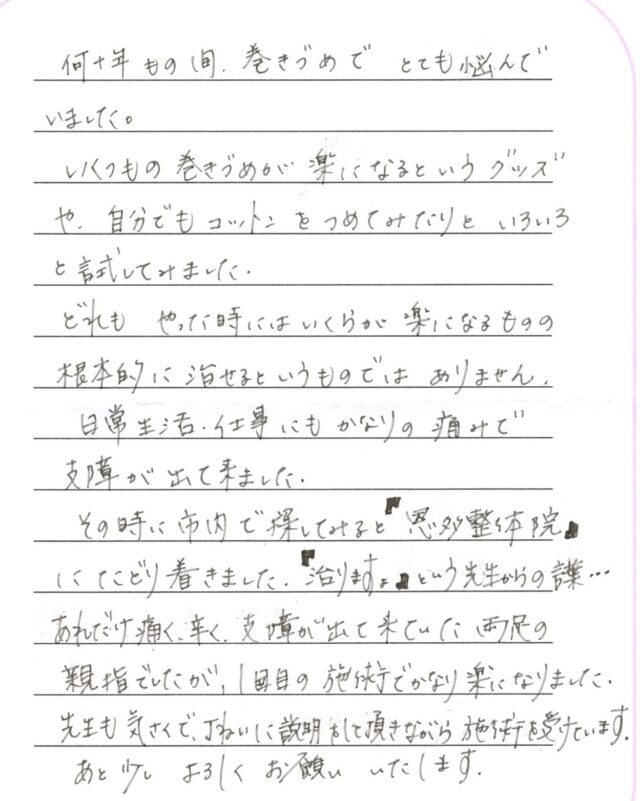 何十年もの間、巻きづめで とても悩んで
いました。
いくつもの巻きづめが 楽になるという グッズ
や、自分でも コットン をつめてみたりと いろいろ
と試してみました。
どれも やった時にはいくらか 楽になるものの
根本的に 治せるというものでは ありません。
日常生活・仕事にも かなりの 痛みで
支障が出て来ました。
その時に市内で探してみると『恩多整体院』
にたどり着きました。『治りますよ』という先生からの言葉…
あれだけ痛く、辛く、支障が出て来ていた 両足の
親指でしたが、1回目の 施術でかなり 楽になりました。
先生も気さくで、丁ねいに説明をして頂きながら 施術を受けています。
あと少し よろしく お願い いたします。